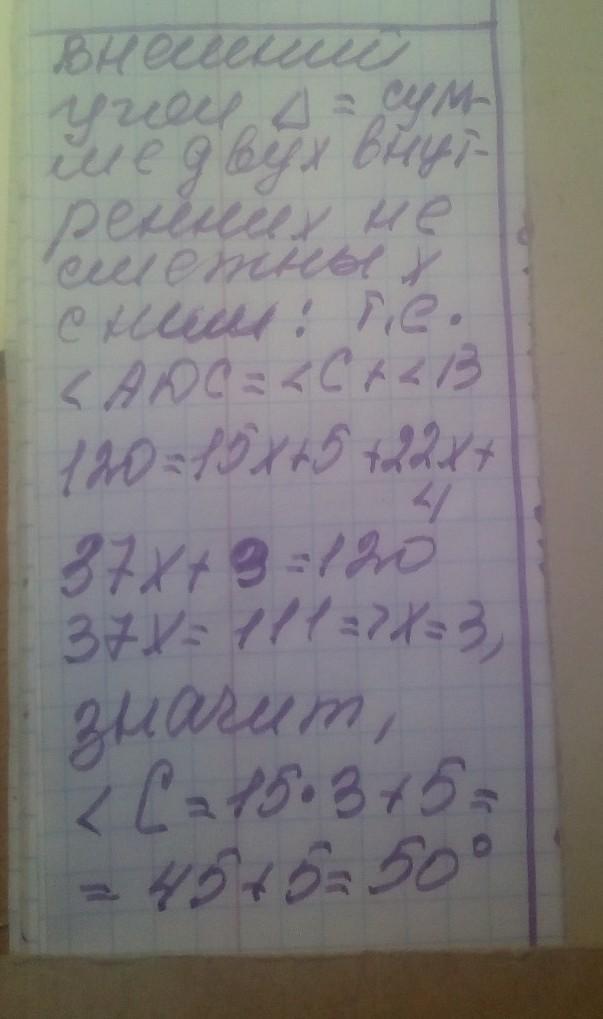 внешний
угол Δ = сум-
ме двух внут-
ренних не
смежных
с ним: т.е.
<ADC=<C+<B
120=15x+5+22x+
4
37x+9=120
37x=111=>x=3,
значит,
<C=15·3+5=
=45+5=50°